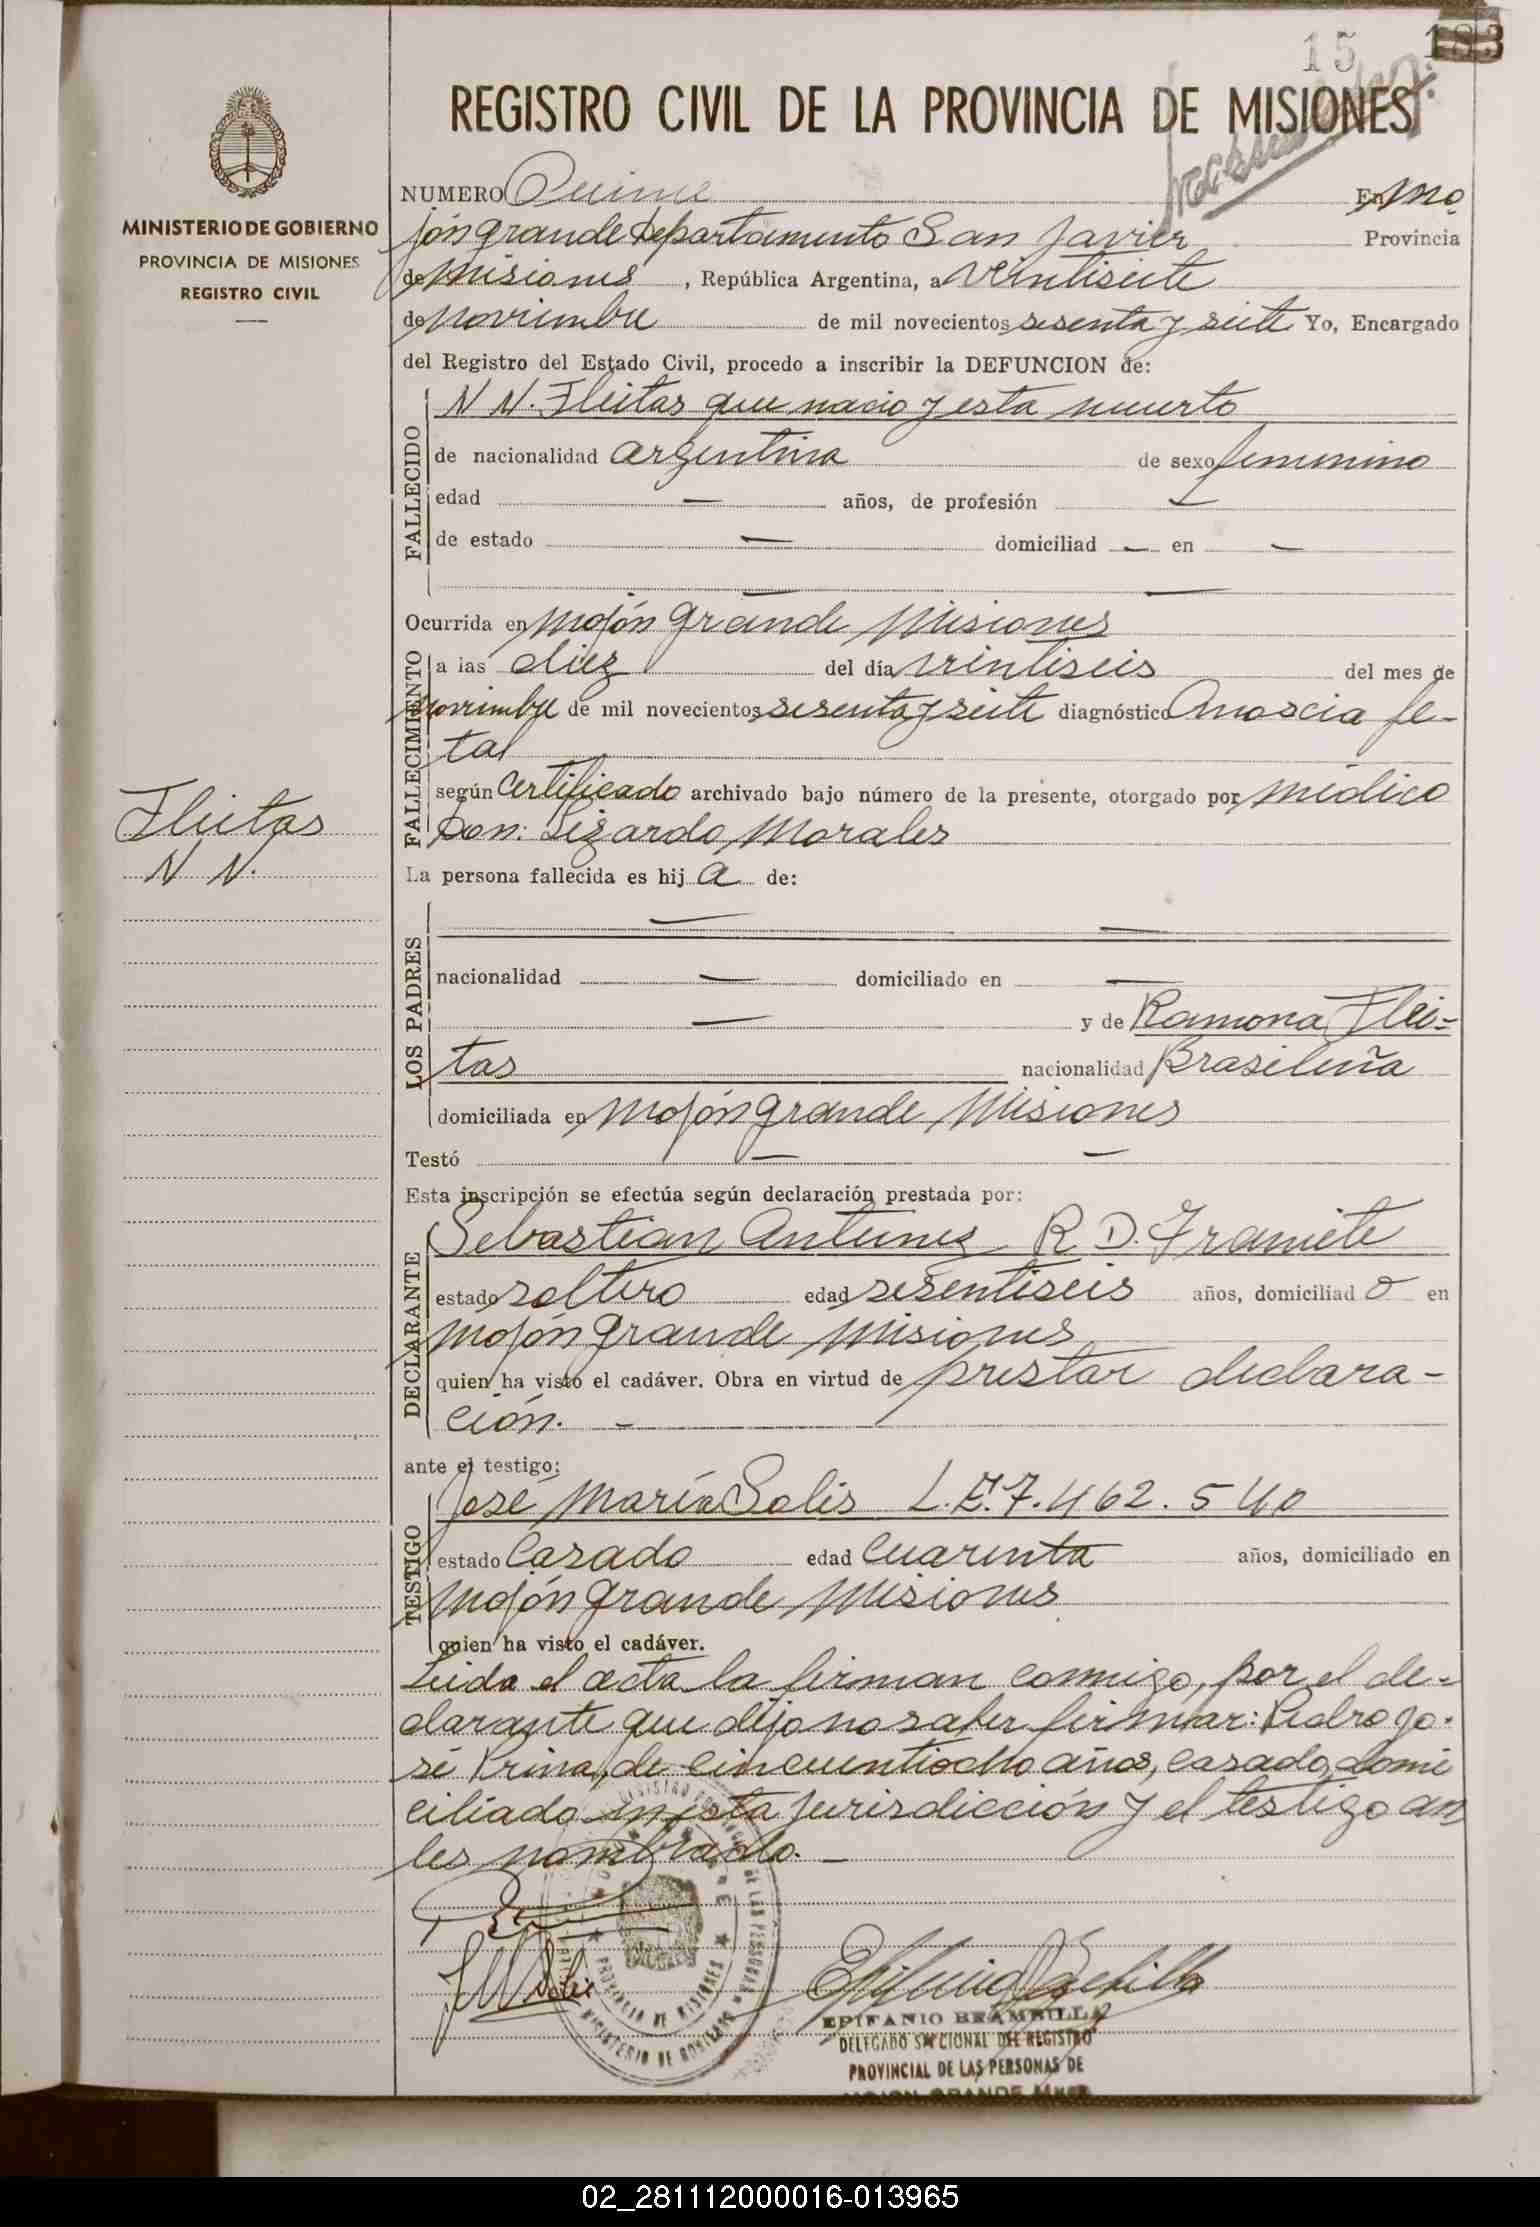 15 183
REGISTRO CIVIL DE LA PROVINCIA DE MISIONES
MINISTERIO DE GOBIERNO
PROVINCIA DE MISIONES
REGISTRO CIVIL
NUMERO Quince En Mo
jón grande departamento San Javier Provincia
de Misiones, República Argentina, a veintisiete
de noviembre de mil novecientos sesenta y siete Yo, Encargado
del Registro del Estado Civil, procedo a inscribir la DEFUNCION de:
FALLECIDO
N N. Fleitas que nacio y esta muerto
de nacionalidad argentina de sexo femenino
edad — años, de profesión —
de estado — domiciliad — en —
— —
Ocurrida en Mojón grande Misiones
FALLECIMIENTO
a las diez del día veintiseis del mes de
noviembre de mil novecientos sesenta y siete diagnóstico Anoscia fe-
tal
según certificado archivado bajo número de la presente, otorgado por médico
Don: Lizardo Morales
Fleitas
N N.
La persona fallecida es hij a de:
LOS PADRES
— —
nacionalidad — domiciliado en —
— y de Ramona Flei-
tas nacionalidad Brasileña
domiciliada en Mojón grande Misiones
Testó — —
Esta inscripción se efectúa según declaración prestada por:
DECLARANTE
Sebastian Antunez R. D. Tramite
estado soltero edad sesentiseis años, domiciliad o en
Mojón grande Misiones
quien ha visto el cadáver. Obra en virtud de prestar declara-
ción. -
ante el testigo:
TESTIGO
José María Solis L.E. 7.462.540
estado Casado edad cuarenta años, domiciliado en
Mojón grande Misiones
quien ha visto el cadáver.
Leida el acta la firman conmigo, por el de-
clarante que dijo no saber firmar: Pedro Jo-
sé Prina, de cincuentiocho años, casado, domi
ciliado en esta jurisdicción y el testigo an
tes nombrado. —
PROVINCIA DE MISIONES
MINISTERIO DE GOBIERNO
DE LAS PERSONAS
EPIFANIO BRAMBILLA
DELEGADO SECCIONAL DEL REGISTRO
PROVINCIAL DE LAS PERSONAS DE
MOJON GRANDE
02_281112000016-013965